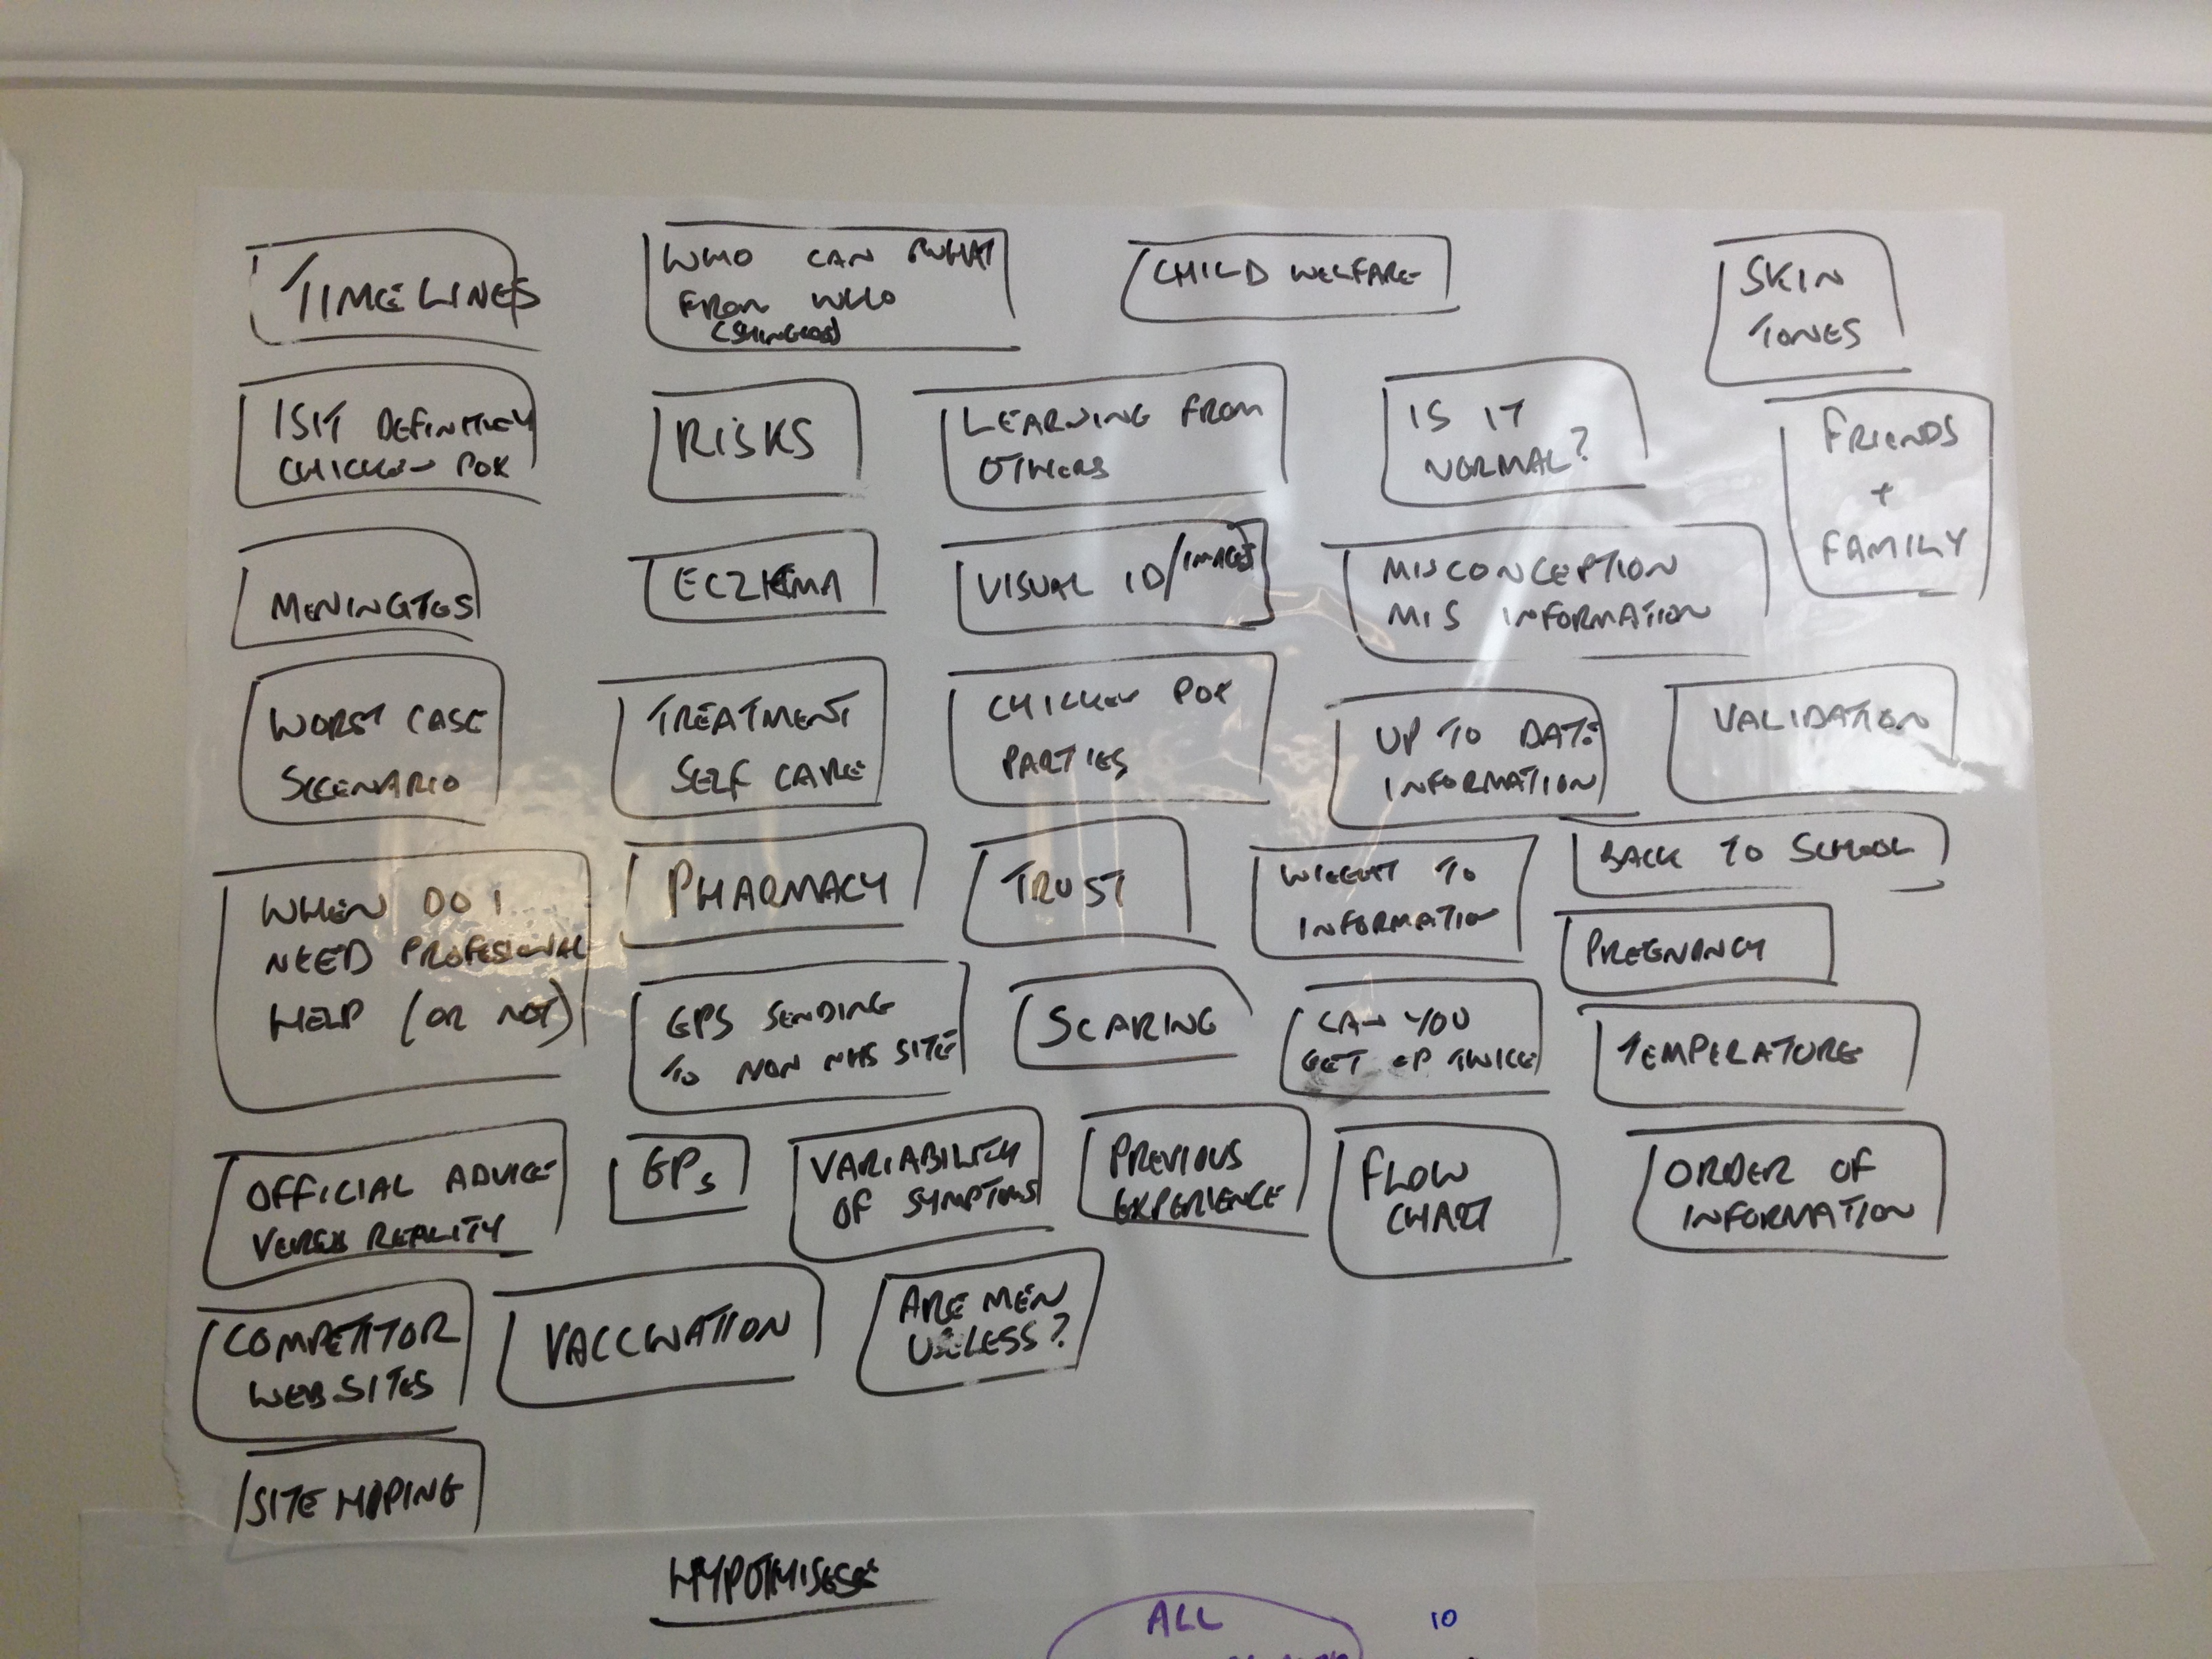 TIMELINES
WHO CAN WHAT
FROM WHO
(SHINGLES)
CHILD WELFARE
SKIN
TONES
IS IT DEFINITLEY
CHICKEN POX
RISKS
LEARNING FROM
OTHERS
IS IT
NORMAL?
FRIENDS
+
FAMILY
MENINGTGS
ECZKEMA
VISUAL ID/IMAGES
MISCONCEPTION
MIS INFORMATION
WORST CASE
SCENARIO
TREATMENT
SELF CARE
CHICKEN POX
PARTIES
UP TO DATE
INFORMATION
VALIDATION
WHEN DO I
NEED PROFESIONAL
HELP (OR NOT)
PHARMACY
TRUST
TO
INFORMATION
BACK TO SCHOOL
PREGNANCY
GPS SENDING
TO NON NHS SITE
SCARING
CAN YOU
GET CP TWICE
TEMPERATURE
OFFICIAL ADVICE
REALITY
GPs
VARIABILITY
OF SYMPTOMS
PREVIOUS
EXPERIENCE
FLOW
CHART
ORDER OF
INFORMATION
COMPETITOR
WEBSITES
VACCINATION
ARE MEN
USELESS?
SITE MAPPING
HYPOTHISESE
ALL
10